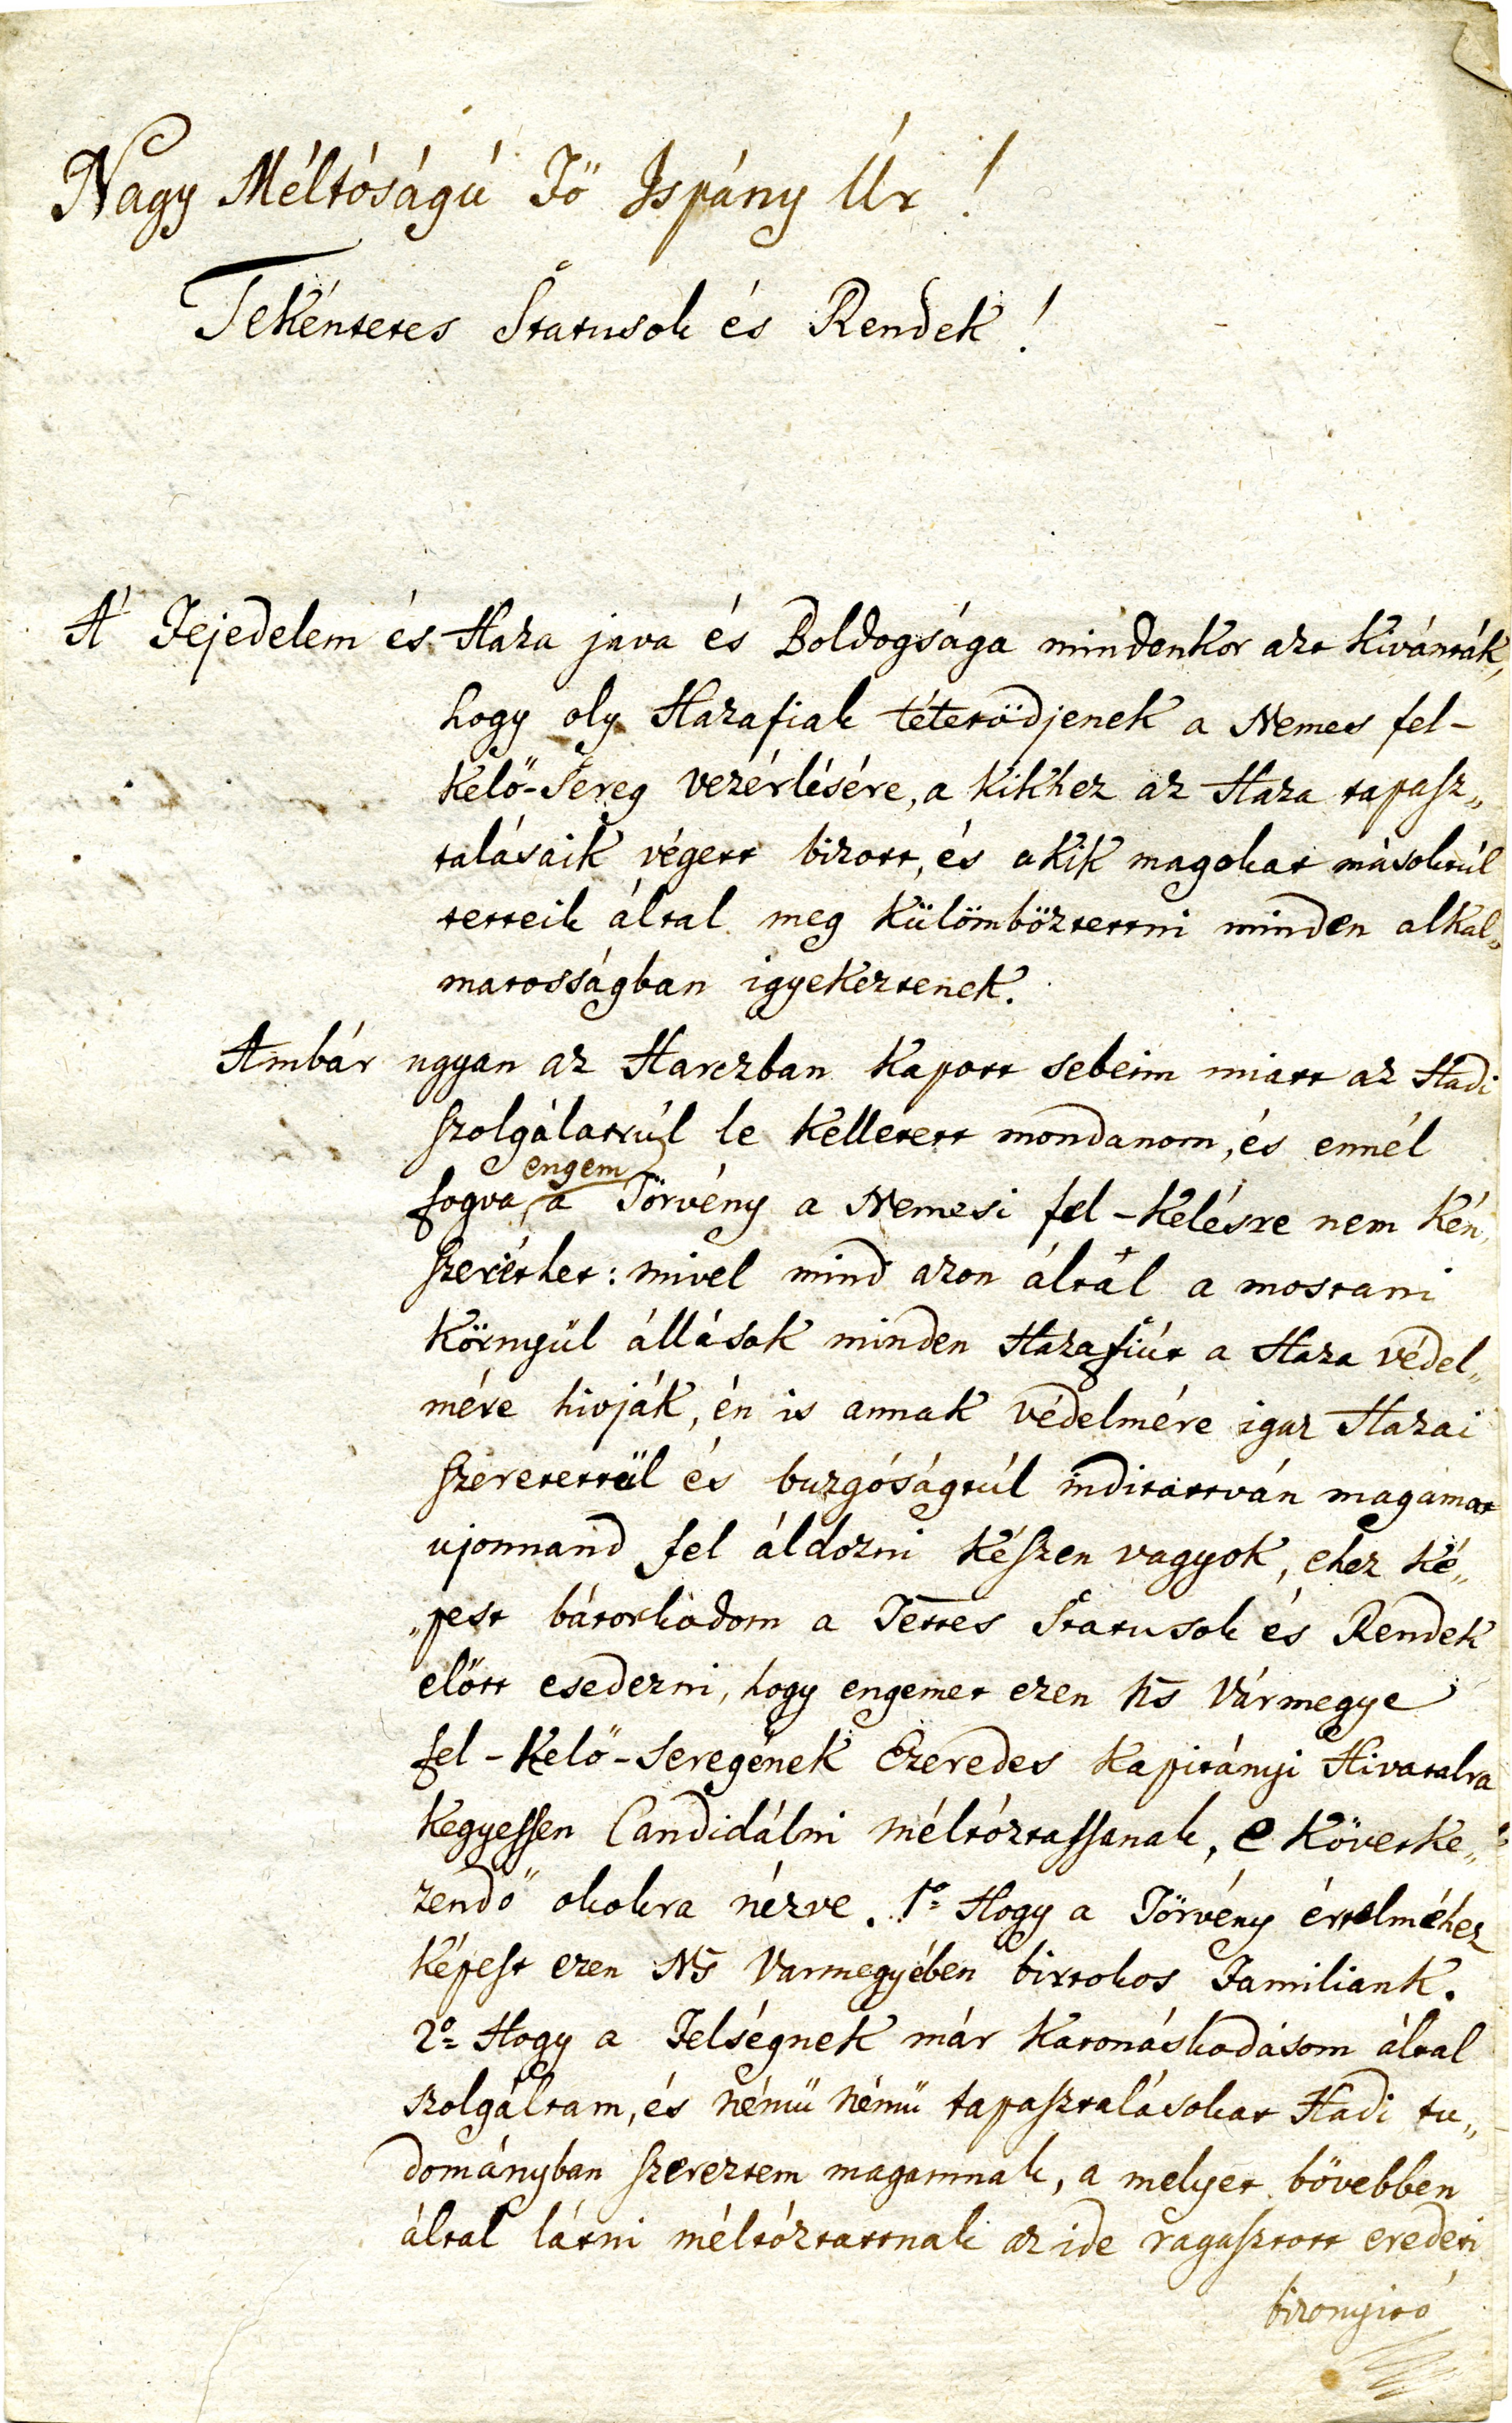 Nagy Méltóságú Fő Ispány Úr!
Tekéntetes Status̃ok és Rendek!
A' Fejedelem és Haza java és Boldogsága mindenkor azt kivánták,
hogy oly Hazafiak tétetödjenek a Nemes fel-
kelő-Sereg vezérlésére, a kikhez az Haza tapasz„
talásaik végett bizott, és akik magokat másoktúl
tetteik által meg külömböztettni minden alkal„
matosságban igyekeztenek.
Ambár ugyan az Harczban kapott sebeim miatt az Hadi
szolgálattúl le kelletett mondanom, és ennél
fogva engem a Törvény a Nemesi fel-kelésre nem kén„
szeríthet: mivel mind azon áltál a mostani
környül állások minden Hazafiút a Haza védel„
mére hivják, én is annak védelmére igaz Hazai
szeretettül és buzgóságtúl indítattván magamat
ujonnand fel áldozni készen vagyok, ehez ké„
„pest bátorkodom a Tettes Statusok és Rendek
előtt esedezni, hogy engemet ezen Ns Vármegye
fel-kelő-Seregének Ezeredes Kapitányi Hivatalra
kegyessen Candidálni méltóztassanak, e követke„
zendő okokra nézve. 1º Hogy a Törvény értelméhez
képest ezen Ns Varmegyében birtokos Familiank.
2º Hogy a Felségnek már katonáskodásom által
szolgáltam, és némü némü tapasztalásokat Hadi tu„
dományban szereztem magamnak, a melyet bövebben
által látni méltóztattnak az ide ragasztott eredeti
bizonyitó